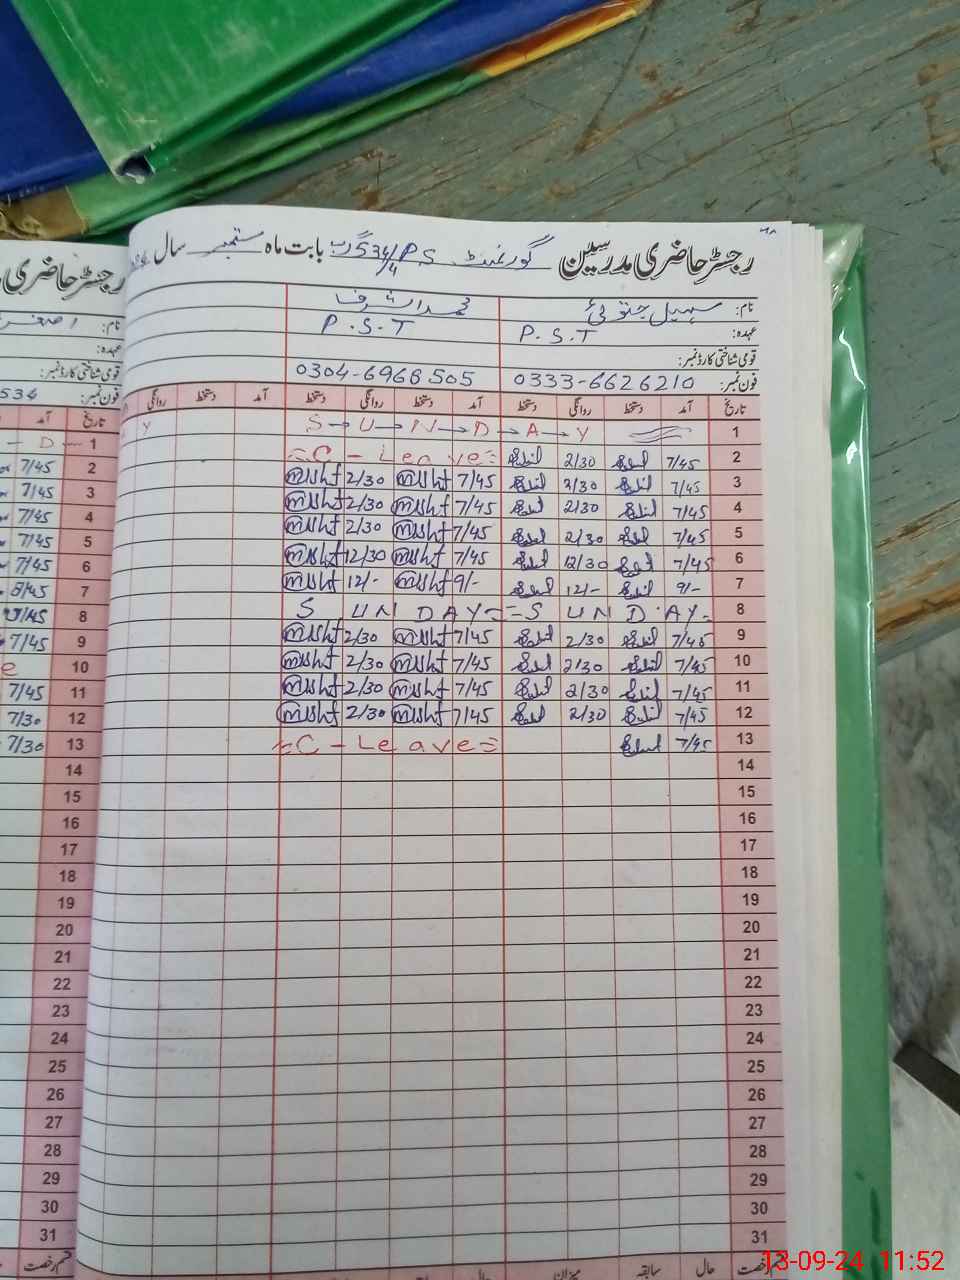 رجسٹر حاضری مدرسین گورنمنٹ P.S 534/گ ب بابت ماہ ستمبر سال
نام: سہیل جتوئی محمد اشرف
عہدہ: P.S.T P.S.T
قومی شناختی کارڈ نمبر:
فون نمبر: 0333-6626210 0304-6968505
تاریخ آمد دستخط روانگی دستخط آمد دستخط روانگی دستخط آمد دستخط روانگی
1 S → U → N → D → A → Y Y
2 7/45 2/30 =C - Leave=
3 7/45 2/30 7/45 2/30
4 7/45 2/30 7/45 2/30
5 7/45 2/30 7/45 2/30
6 7/45 12/30 7/45 12/30
7 9/- 12/- 9/- 12/-
8 S UN DAY = = S UN D AY -
9 7/45 2/30 7/45 2/30
10 7/45 2/30 7/45 2/30
11 7/45 2/30 7/45 2/30
12 7/45 2/30 7/45 2/30
13 7/45 =C - Leave=
14
15
16
17
18
19
20
21
22
23
24
25
26
27
28
29
30
31
قسم رخصت حال سابقہ میزان حال
رجسٹر حاضری
نام: اصغر
عہدہ:
قومی شناختی کارڈ نمبر:
فون نمبر: 534
تاریخ آمد
1 - D -
2 7/45
3 7/45
4 7/45
5 7/45
6 7/45
7 8/45
8
9 7/45
10 e
11 7/45
12 7/30
13 7/30
14
15
16
17
18
19
20
21
22
23
24
25
26
27
28
29
30
31
قسم رخصت حال
13-09-24 11:52